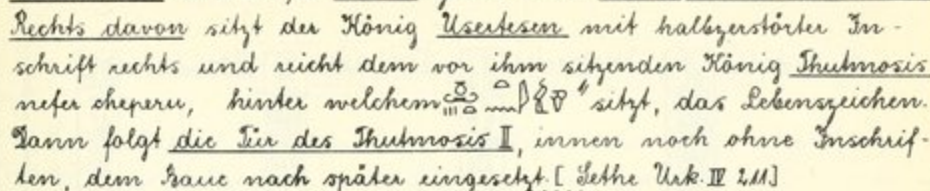 Rechts davon sitzt der König Usertesen mit halbzerstörter In-
schrift rechts und reicht dem vor ihm sitzenden König Thutmosis
nefer cheperu, hinter welchem sitzt, das Lebenszeichen.
Dann folgt die Tür des Thutmosis II, innen noch ohne Inschrif-
ten, dem Baue nach später eingesetzt. [Sethe Urk. IV 211]